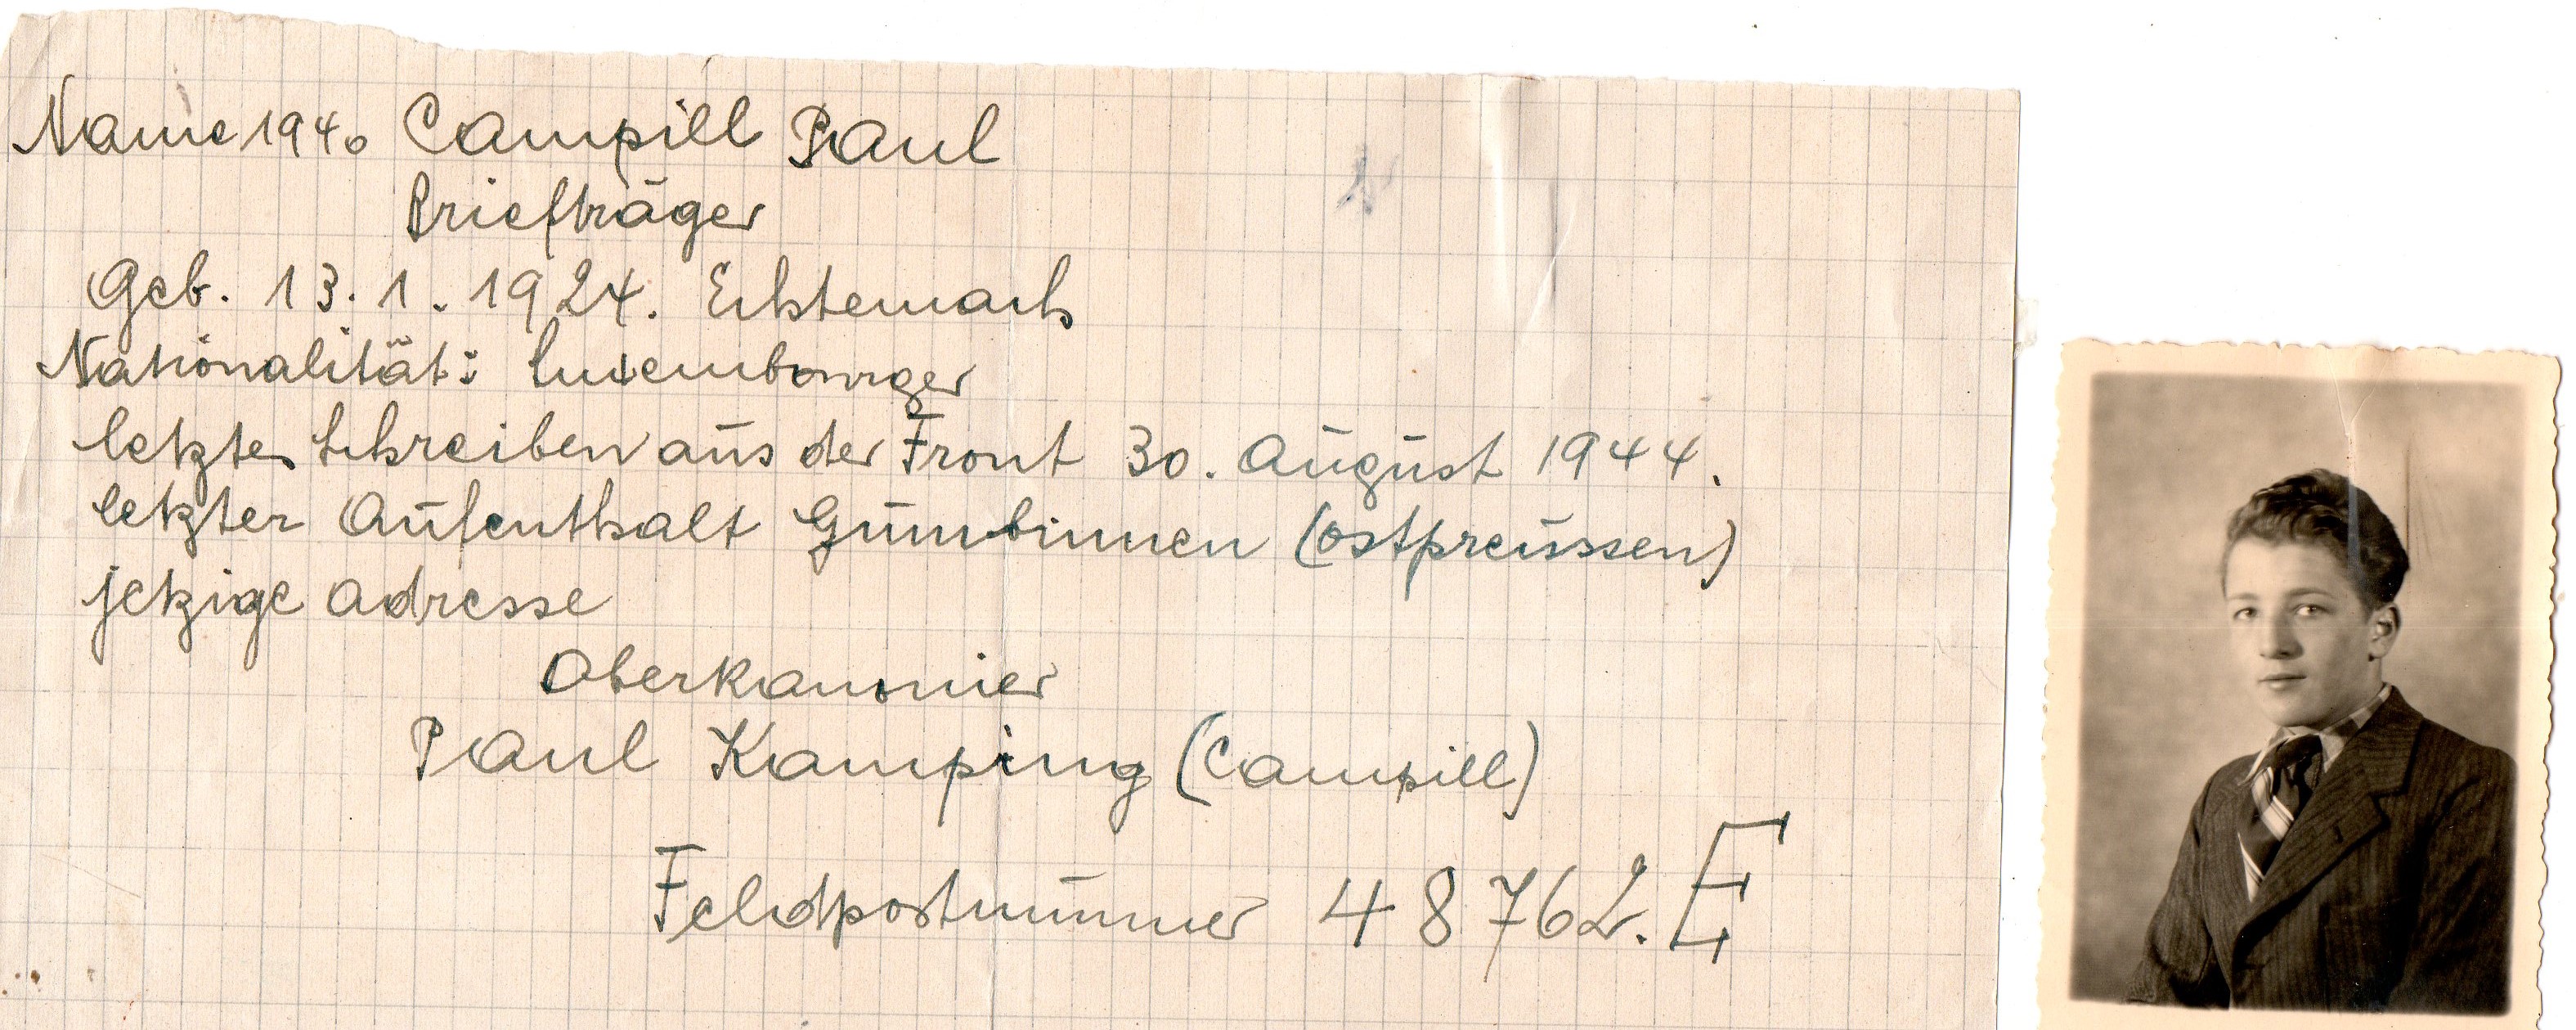 Name 1940 Campill Paul
Briefträger
Geb. 13. 1. 1924. Echternach
Nationalität: Luxembourger
letztes Schreiben aus der Front 30. August 1944.
letzter Aufenthalt Gumbinnen (Ostpreussen)
jetzige Adresse
Oberkanonier
Paul Kamping (Campill)
Feldpostnummer 48762.E